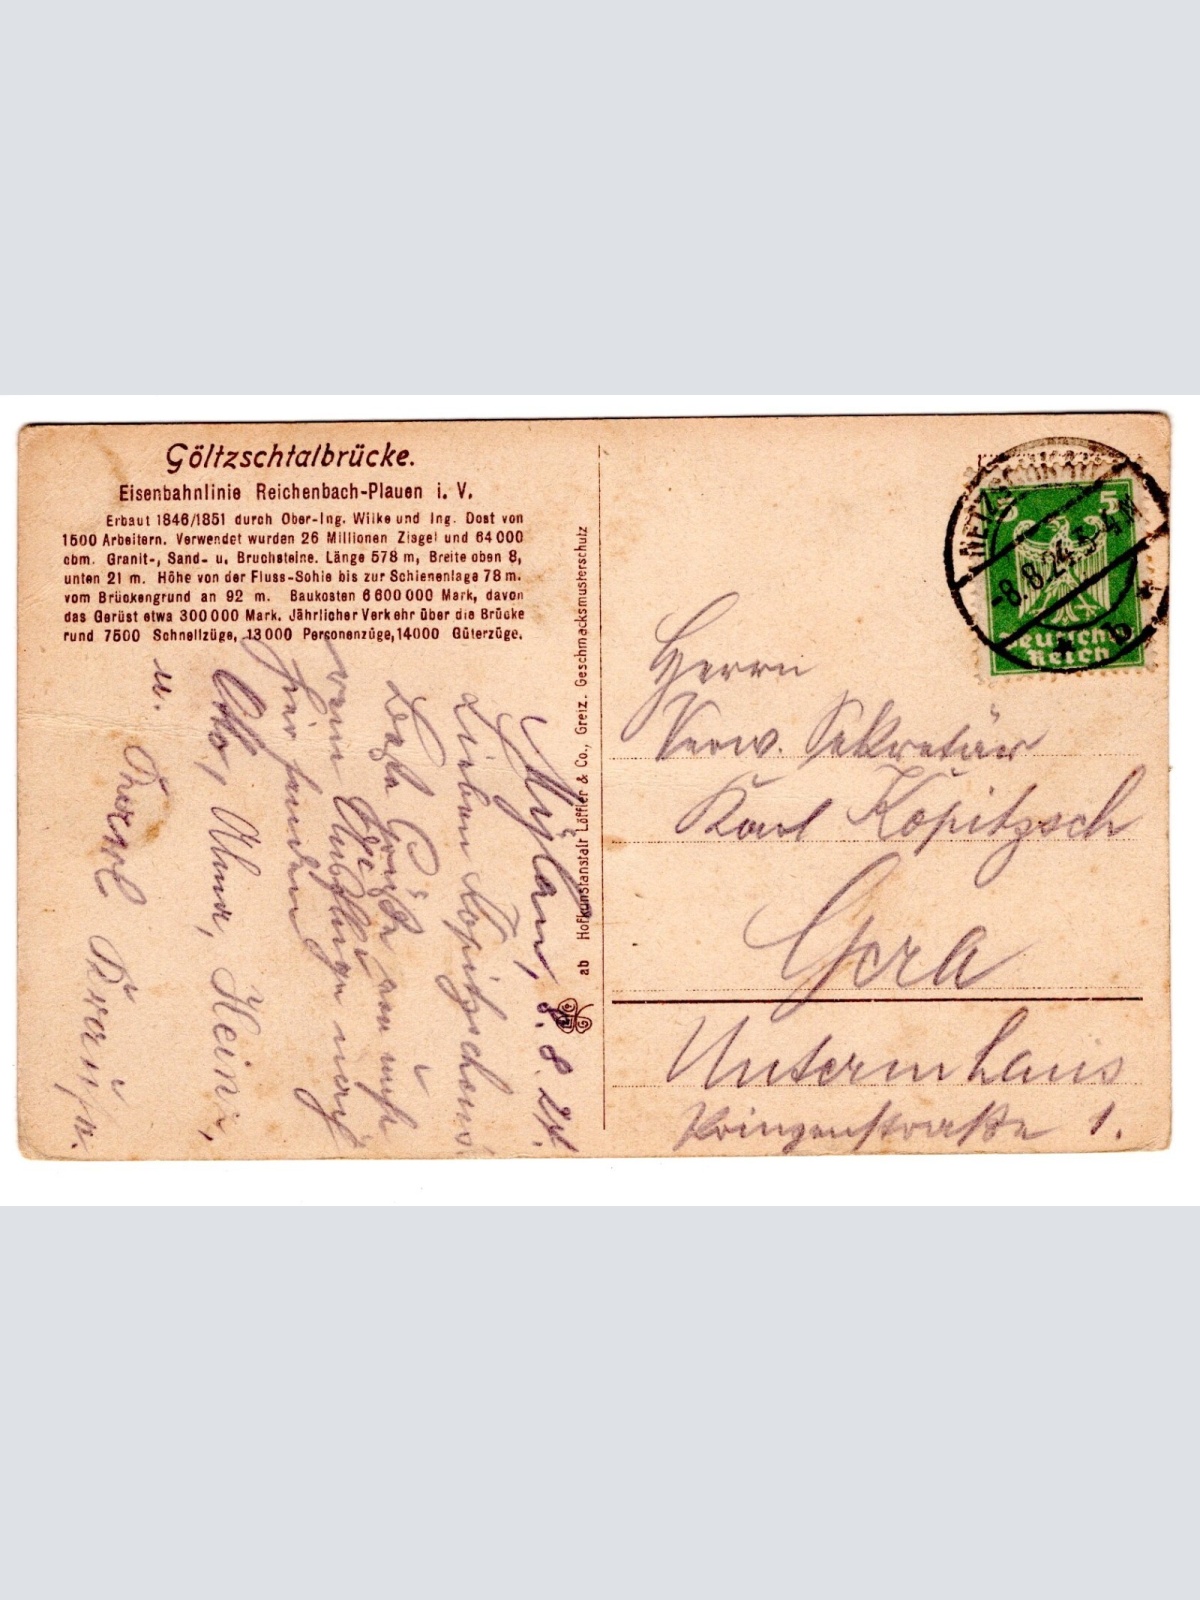 Göltzschtalbrücke.
Eisenbahnlinie Reichenbach-Plauen i. V.
Erbaut 1846/1851 durch Ober-Ing. Wilke und Ing. Dost von
1500 Arbeitern. Verwendet wurden 26 Millionen Ziegel und 64000
cbm. Granit-, Sand- u. Bruchsteine. Länge 578 m, Breite oben 8,
unten 21 m. Höhe von der Fluss-Sohle bis zur Schienenlage 78 m.
vom Brückengrund an 92 m. Baukosten 6600000 Mark, davon
das Gerüst etwa 300000 Mark. Jährlicher Verkehr über die Brücke
rund 7500 Schnellzüge, 13000 Personenzüge, 14000 Güterzüge.
Mylau, 8. 8. 24.
Lieben Kopitzschens!
Beste Grüße von unsrem
Ausfluge nach
hier senden
Otto, Alma, Heinz,
u.
ab Hofkunstanstalt Löffler & Co., Greiz. Geschmacksmusterschutz
-8.8.24.3-4N
* b *
5 5
Deutsches
Reich
Herrn
Verw. Sekretär
Karl Kopitzsch
Gera
Untermhaus
1.